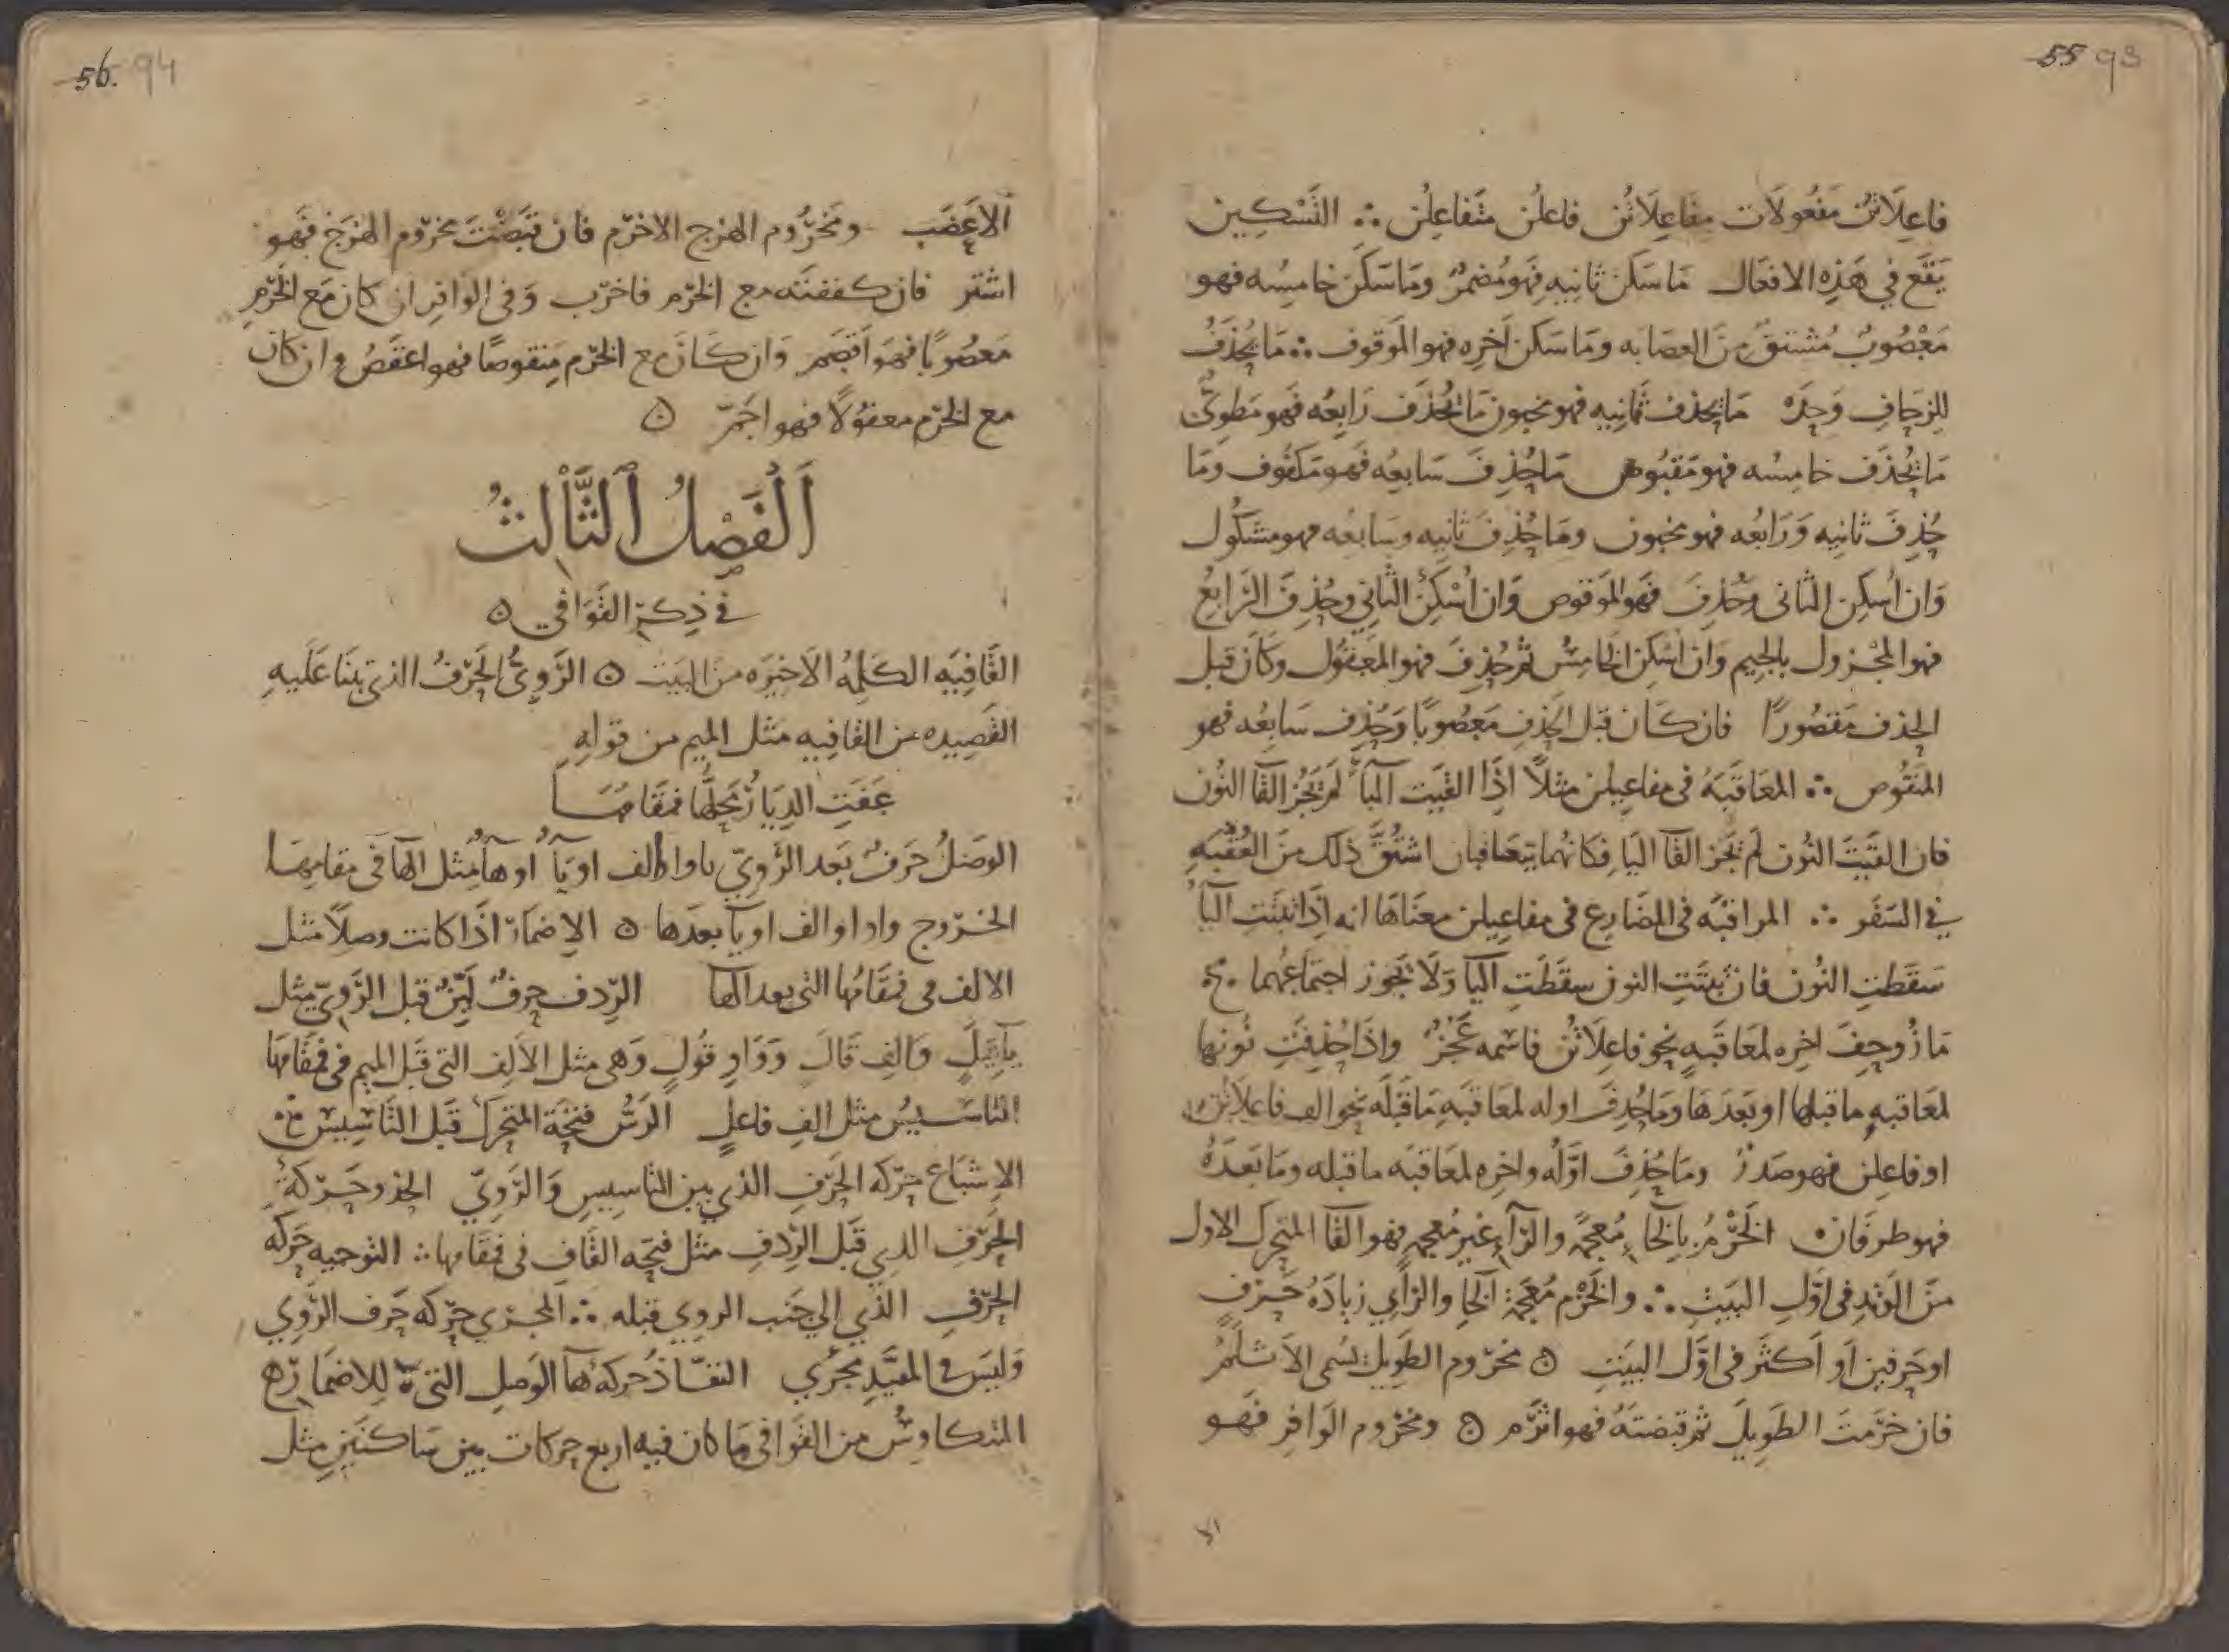 55 93
فاعِلَاتُن مَفعُولَات مفَاعِلَاتُن فاعلُن متَفاعِلُن ∴ التَّسْكِين
يَقَع في هَذِه الافعَال مَا سَكَن ثانِيهِ فهَو مُضمَرٌ ومَا سَكَنَ خامِسُه فهو
مَعْصُوبٌ مُشتقٌ مِنَ العِصَابه ومَا سَكَن آخِره فهو المَوقوف ∴ مَا يُحْذَفُ
للزحَافِ وَحدَه مَا يحذف ثَانِيهِ فهو مخبون مَا يُحْذَف رَابِعُه فَهو مَطوِىٌّ
مَا يُحْذَف خامِسُه فهو مَقبُوض مَا حُذِفَ سَابعُه فَهو مَكفُوف ومَا
حُذِفَ ثانِيه وَرَابعُه فهو مخبون ومَا حُذِفَ ثانِيه وسَابعُه فهو مشكُول
وَان اُسْكِن الثانى وحُذِفَ فهَو المَوقوص وَان اُسْكِنَ الثانِي وحُذِفَ الرَّابِعُ
فهو المجْزول بالجيم وَان اُسْكِن الخامِسُ ثم حُذِفَ فهو المَعقُول وكَانَ قبل
الحذف مَقصُورًا فان كَانَ قبل الحَذفِ مَعصُوبًا وَحُذِف سَابِعُه فهو
المَنقُوص ∴ المعَاقَبَهُ فى مفاعِيلن مثلاً اذَا القَيت اليَآءَ لَم يَجُز القَا النُون
فان القَيتَ النُون لم يَجُز القَآ اليَا فكَانهُما يتعَاقبان اشتُقَّ ذلك منَ العُقْبَهِ
فِي السَفَر ∴ المراقبَه فى المضَارِع فى مفاعِيلن معنَاهَا انه اذَا ثبَتَتِ اليآءُ
سَقَطَتِ النُون فان ثبتَتِ النون سقَطَتِ اليَآ وَلَا تَجوز اجتمَاعُهما
مَا زُوحِفَ اخِره لمعَاقَبهٍ نحو فاعِلَاتُن فاسْمه عَجُزٌ واِذَا حُذِفَتِ نُونها
لمعَاقبهِ ما قبلها او بَعدَهَا ومَا حُذِفَ اوله لمعَاقبَهِ مَا قَبلَه نحو الف فاعلَاتُن
او فاعِلن فهو صَدرٌ ومَا حُذِفَ اوَّلُه واخِره لمعَاقبَه ما قبله ومَا بَعدَهُ
فهو طرفَانِ الخَرْمُ بالخَاءِ مُعجمَهً والرَّآءِ غير مُعجمهٍ فهو القَا المتحرك الاول
منَ الوَتدِ فى اوَّلِ البَيتِ ∴ والخَزْم مُعجمَة الخَا والزَاي زيادَهُ حَرفٍ
او حَرفين اَو اَكثَر فى اوَّل البَيتِ ۞ مخرُوم الطَويل يُسَمى الاَثلَمُ
فان خرَمتَ الطَويلَ ثم قبضتَهُ فهو اثرَم ۞ ومخرُوم الوَافِر فَهو
56. 94
الاَعضَب ومَخرُوم الهزج الاخرَم فان قبَضْتَ مخرُوم الهزَج فهَو
اشتر فان كففتَه مع الخَرْم فاخرَب وَفى الوَافِر ان كانَ مَع الخَرْمِ
مَعصُوبًا فهوَ اَقصَم وَان كَانَ مع الخَرْم مَنقوصًا فهو اعقَصُ وان كان
مع الخَرْم معقوُلاً فهو اجَمّ ۞
اَلْفَصْلُ الثَّالِثُ
في ذِكرِ القوَافي ۞
القَافِيَه الكَلِمَهُ الاَخيرَه منَ البَيت ۞ الرَّوِىُّ الحَرْفُ الذي يبنَا عَلَيهِ
القَصِيده من القَافِيه مثل الميم من قولِهِ
عَفَتِ الدِيَارُ مَحلُّها فمقَامُهَا
الوَصلُ حَرفٌ بَعد الرَّوِيّ واو او الف او يَآءٌ اَو هآءٌ مثل الهَا فى مقامهَا
الخرُوج واو او الف او يآ بعدَها ۞ الاِضمَار اذَا كانت وصلاً مثل
الالف فى فمقَامُها التى بعد الهَا الرِّدف حرفٌ لَيّنٌ قبل الرَّوِيّ مثل
يآءِ قِيلٍ وَالِف قَالَ وَوَاوِ قُولٍ وَهى مثل الاَلِف التى قَبل الميم فى فمقَامهَا
التاسيسُ مثل الفِ فاعلٍ الرَسُّ فتحَة المتحرك قَبل التَاسِيسْ
الاِشبَاع حرَكه الحَرفِ الذي بين التاسِيسِ وَالرَوِيّ الحذو حَركةُ
الحَرْفِ الذي قَبل الرِّدفِ مثل فتحَه القَاف فى فمقَامها ∴ التوجيه حَركَه
الحَرْفِ الذي الي جَنب الروِي قبله ∴ المَجرَي حرَكه حَرف الرَّوِي
وَليسَ في المقيَّدِ مجرًي النفَاذ حركهُ هآ الوَصلِ التى للاضمَار
المتكاوسُ من القَوافى مَا كان فيه اربع حركات بين سَاكنَينِ مثل